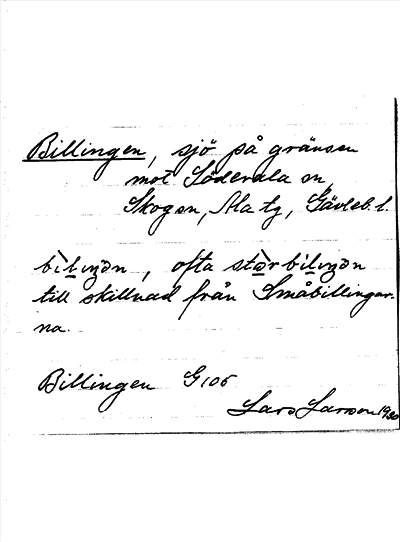 Billingen, sjö på gränsen
mot Söderala sn,
Skog sn, Ala tg, Gävleb. l.
bìlıŋən, ofta stơrbìlıŋən
till skillnad från Småbillingar-
na.
Billingen G 106
Lars Larsson 1930